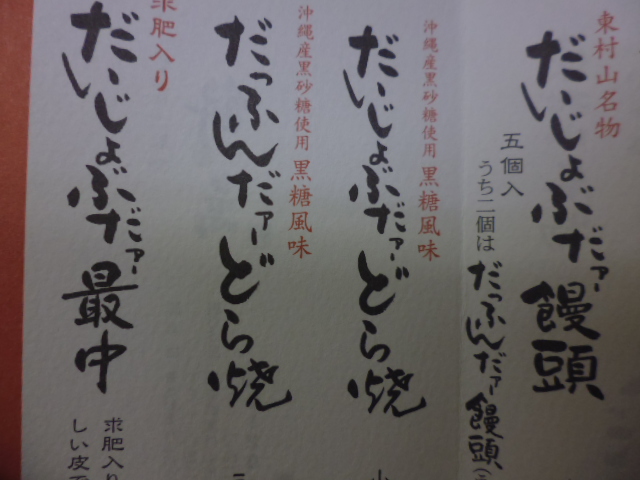 東村山名物
だいじょぶだァー饅頭
五個入
うち二個は
だっふんだァー饅頭
沖縄産黒砂糖使用 黒糖風味
だいじょぶだァーどら焼
沖縄産黒砂糖使用 黒糖風味
だっふんだァーどら焼
求肥入り
だいじょぶだァー最中
求肥入り
しい皮で